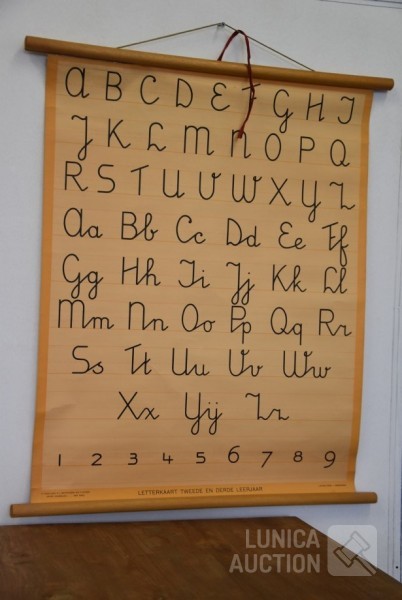 A B C D E F G H I
J K L M N O P Q
R S T U V W X Y Z
Aa Bb Cc Dd Ee Ff
Gg Hh Ii Jj Kk Ll
Mm Nn Oo Pp Qq Rr
Ss Tt Uu Vv Ww
Xx Yij Zz
1 2 3 4 5 6 7 8 9
LETTERKAART TWEEDE EN DERDE LEERJAAR
LUNICA
AUCTION